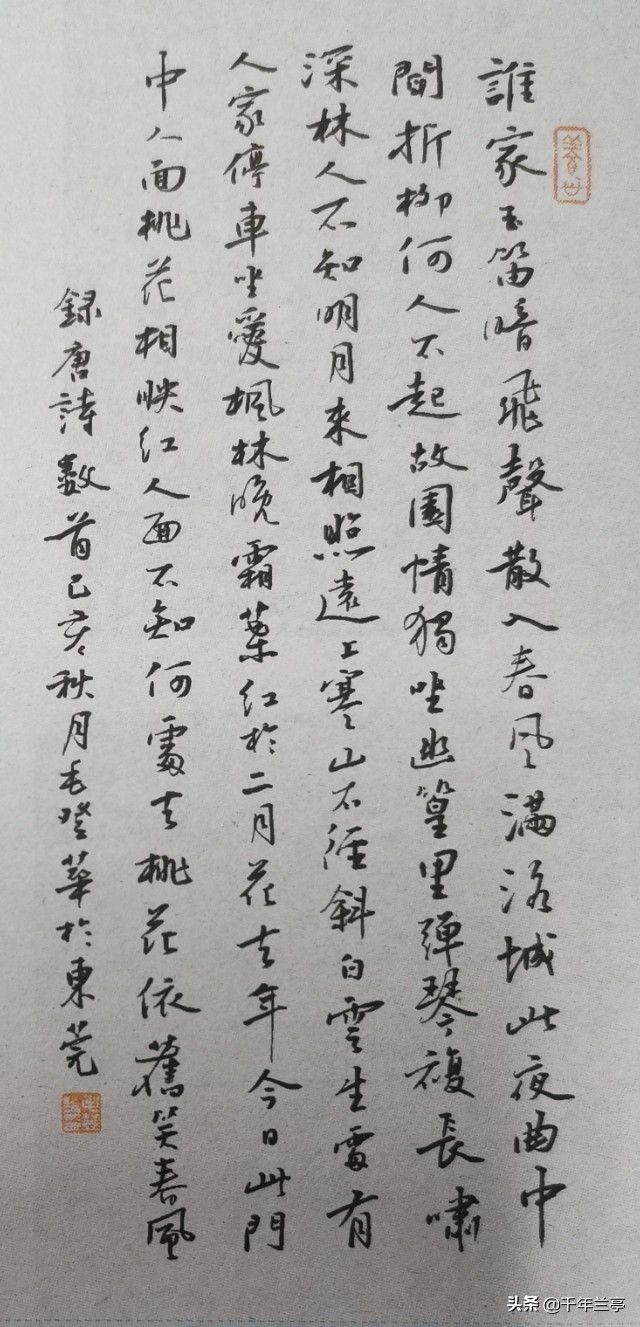 誰家玉笛暗飛聲散入春風滿洛城此夜曲中
聞折柳何人不起故園情獨坐幽篁里彈琴複長嘯
深林人不知明月來相照遠上寒山石徑斜白雲生處有
人家停車坐愛楓林晚霜葉紅於二月花去年今日此門
中人面桃花相映紅人面不知何處去桃花依舊笑春風
録唐詩數首己亥秋月毛登華於東莞
头条 @千年兰亭